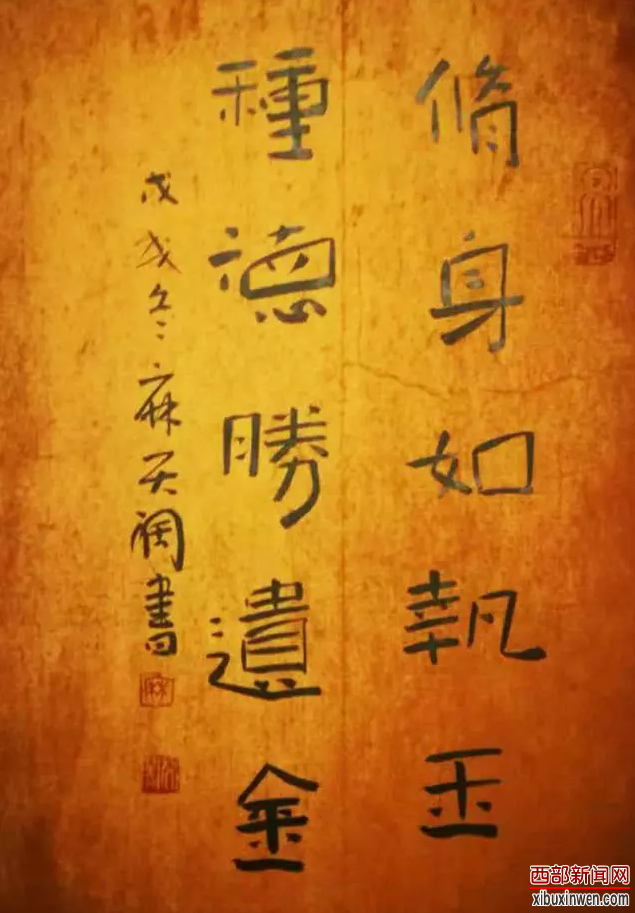 脩身如執玉
種德勝遺金
戊戌冬麻天阔書
西部新闻网
xibuxinwen.com